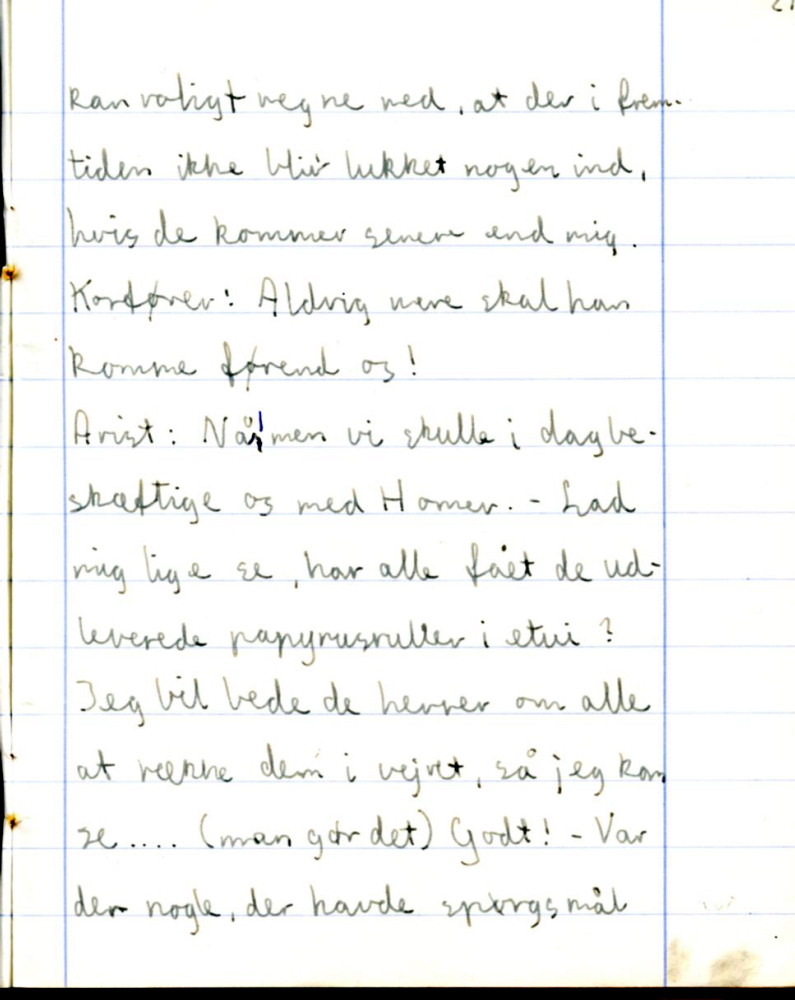 kan roligt regne med, at der i frem-
tiden ikke bliv lukket nogen ind,
hvis de kommer senere end mig.
Korfører: Aldrig mere skal han
komme førend os!
Arist: Nå, men vi skulle i dag be-
skæftige os med Homer. - Lad
mig lige se, har alle fået de ud-
leverede papyrusruller i etui?
Jeg vil bede de herrer om alle
at række dem i vejret, så jeg kan
se.... (man gør det) Godt! - Var
der nogle, der havde spørgsmål